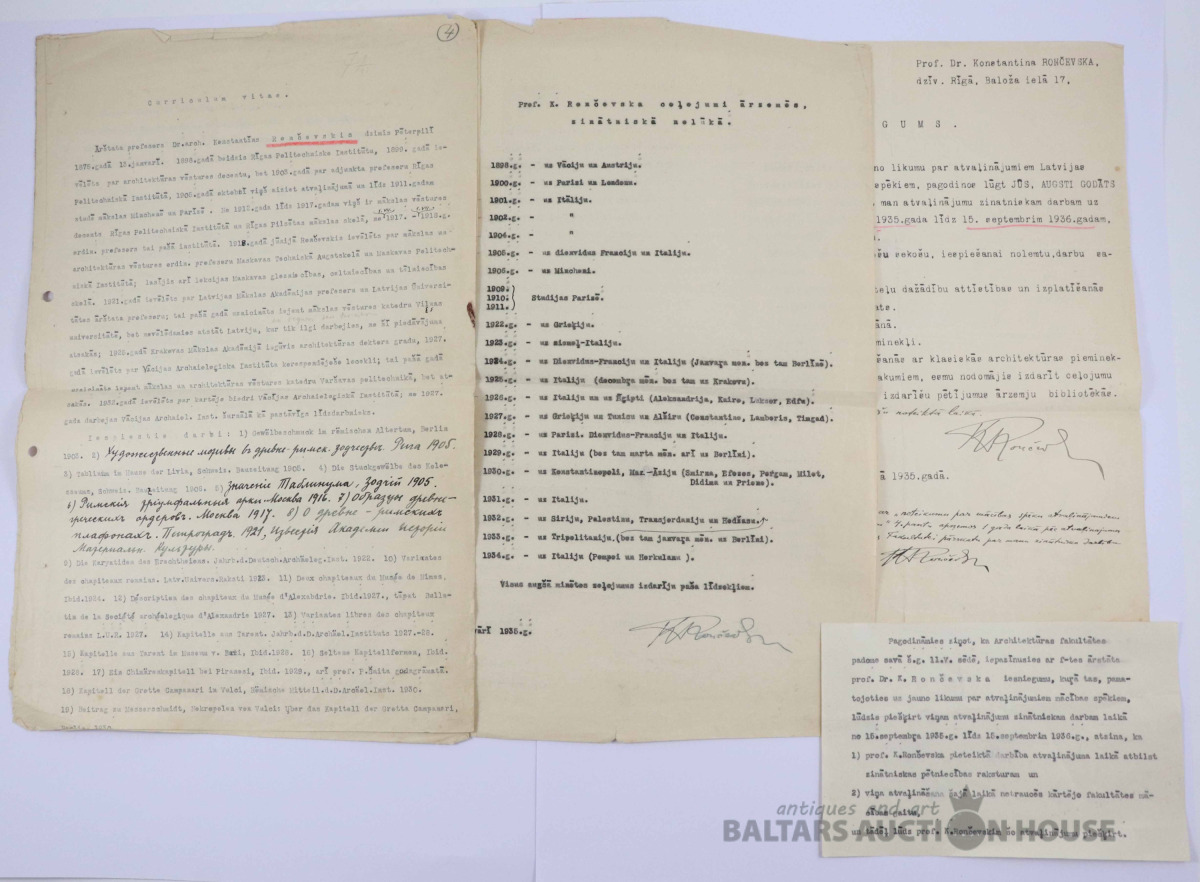 4
Curriculum vitae.
Ārštata profesors Dr.arch. Konstantīns Rončevskis dzimis Pēterpilī
1875.gadā 13.janvarī. 1898.gadā beidzis Rīgas Politechnisko Institutu, 1899. gadā ie-
vēlēts par architektūras vēstures docentu, bet 1903.gadā par adjunkta profesoru Rīgas
Politechniskā Institutā, 1908.gadā oktobrī viņš aiziet atvaļinājumā un līdz 1911.gadam
studē mākslas Minchenē un Parizē. No 1912.gada līdz 1917.gadam viņš ir mākslas vēstures
docents Rīgas Politechniskā Institutā un Rīgas Pilsētas mākslas skolā, no 1917. - 1918.g.
ordin. profesors tai pašā institutā. 1918.gadā jūnijā Rončevskis ievēlēts par mākslas un
architektūras vēstures ordin. profesoru Maskavas Techniskā Augstskolā un Maskavas Politech-
niskā Institutā; lasījis arī lekcijas Maskavas gleznicības, celtniecības un tēlniecības
skolā. 1921.gadā ievēlēts par Latvijas Mākslas Akadēmijas profesoru un Latvijas Universi-
tātes ārštata profesoru; tai pašā gadā uzaicināts ieņemt mākslas vēstures katedru Viļņas
universitātē, bet nevēlēdamies atstāt Latviju, kur tik ilgi darbojies, no šī piedāvājuma
atsakās; 1925.gadā Krakovas Mākslas Akadēmijā ieguvis architektūras doktora gradu, 1927.
gadā ievēlēts par Vācijas Archaioloģiskā Instituta korespondējošo locekli; tai pašā gadā
uzaicināts ieņemt mākslas un architektūras vēstures katedru Varšavas politechnikā, bet at-
sakās. 1932.gadā ievēlēts par kārtējo biedri Vācijas Archaioloģiskā Institutā; no 1927.
gada darbojas Vācijas Archaiol. Inst. žurnālā kā pastāvīgs līdzdarbnieks.
Iespiestie darbi: 1) Gewölbeschmuck im römischen Altertum, Berlin
1903. 2) Художественные мотивы въ древне-римск. зодчествѣ. Рига 1905.
3) Tablinum im Hause der Livia, Schweiz. Bauzeitung 1905. 4) Die Stuckgewölbe des Kolo-
sseums, Schweiz. Bauzeitung 1905. 5) Значеніе Таблинума, Зодчій 1905.
6) Римскія тріумфальныя арки. Москва 1916. 7) Образцы древне-
греческихъ ордеровъ. Москва 1917. 8) О древне-римскихъ
плафонахъ. Петроградъ, 1921, Извѣстія Академіи Исторіи
Матеріальн. Культуры.
9) Die Karyatiden des Erechtheions. Jahrb.d.Deutsch.Archäolog.Inst. 1922. 10) Variantes
des chapiteaux romains. Latv.Univers.Raksti 1923. 11) Deux chapiteaux du Musée de Nimes,
Ibid.1924. 12) Déscription des chapiteaux du Musée d'Alexandrie. Ibid.1927., tepat Bulle-
tin de la Société archéologique d'Alexandrie 1927. 13) Variantes libres des chapiteaux
romains L.U.R. 1927. 14) Kapitelle aus Tarent. Jahrb.d.D.Archäol.Instituts 1927.-29.
15) Kapitelle aus Tarent im Museum v. Bari, Ibid.1928. 16) Seltene Kapitellformen, Ibid.
1929. 17) Ein Chimärenkapitell bei Piranesi, Ibid. 1929., arī prof. F.Balta godagrāmatā.
18) Kapitell der Grotta Campanari in Vulci, Römische Mitteil.d.D.Archäol.Inst. 1930.
19) Beitrag zu Messerschmidt, Nekropolen von Vulci: Über das Kapitell der Grotta Campanari,
Prof. K. Rončevska ceļojumi ārzemēs,
zinātniskā nolūkā.
1898.g. - uz Vāciju un Austriju.
1900.g. - uz Parizi un Londonu.
1901.g. - uz Itāliju.
1902.g. - "
1904.g. - "
1905.g. - uz dienvidus Franciju un Itāliju.
1908.g. - uz Mincheni.
1909.
1910. } Studijas Parizē.
1911.
1922.g. - uz Grieķiju.
1923.g. - uz ziemeļ-Itāliju.
1924.g. - uz Dienvidus-Franciju un Itāliju (Janvara mēn. bez tam Berlīnē).
1925.g. - uz Itāliju (decembra mēn. bez tam uz Krakovu).
1926.g. - uz Itāliju un uz Ēģipti (Aleksandrija, Kairo, Luksor, Edfu).
1927.g. - uz Grieķiju un Tunisu un Alžiru (Constantine, Lambesis, Timgad).
1928.g. - uz Parizi. Dienvidus-Franciju un Itāliju.
1929.g. - uz Itāliju (bez tam marta mēn. arī uz Berlīni).
1930.g. - uz Konstantinopoli, Maz-Āziju (Smirna, Efezos, Pergam, Milet,
Didima un Priene).
1931.g. - uz Itāliju.
1932.g. - uz Siriju, Palestinu, Transjordaniju un Hedžasu.
1933.g. - uz Tripolitaniju.(bez tam janvara mēn. uz Berlīni).
1934.g. - uz Itāliju (Pompei un Herkulanu ).
Visus augšā minētos ceļojumus izdarīju paša līdzekļiem.
vārī 1935.g.
Prof. Dr. Konstantina RONČEVSKA,
dzīv. Rīgā, Baloža ielā 17,
GUMS.
no likumu par atvaļinājumiem Latvijas
spēkiem, pagodinos lūgt JŪS, AUGSTI GODĀTS
man atvaļinājumu zinatniskam darbam uz
1935.gada līdz 15. septembrim 1936.gadam,
šu sekošu, iespiešanai nolemtu,darbu sa-
teļu dažādību attīstības un izplatīšanās
ats.
ānā.
minekļi.
šanās ar klasiskās architektūras pieminek-
akumiem, esmu nodomājis izdarīt ceļojumu
izdarīšu pētījumus ārzemju bibliotēkās.
ā 1935.gadā.
Pagodināmies ziņot, ka Architektūras fakultātes
padome savā š.g. 11.V. sēdē, iepazinusies ar f-tes ārštata
prof. Dr. K. Rončevska iesniegumu, kurā tas, pama-
tojoties uz jauno likumu par atvaļinājumiem mācības spēkiem,
lūdzis piešķirt viņam atvaļinājumu zinātniskam darbam laikā
no 15.septembra 1935.g. līdz 15.septembrim 1936.g., atzina, ka
1) prof. K.Rončevska pieteiktā darbība atvaļinājuma laikā atbilst
zinātniskas pētniecības raksturam un
2) viņa atvaļināšana šajā laikā netraucēs kārtējo fakultātes mā-
cības gaitu,
un tādēļ lūdz prof. K.Rončevskim šo atvaļinājumu piešķirt.
antiques and art
BALTARS AUCTION HOUSE